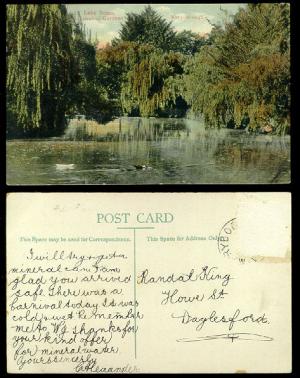 Lake Scene,
Gardens
Maryborough
POST CARD
This Space may be used for Correspondence.
This Space for Address Only
I will try & get a
mineral can. I am
glad you arrived
safe. There was a
carnival today. It was
cold & wet. Remember
me to W J. Thanks for
your kind offer
for mineral water.
Yours sincerely
Randal King
Howe St.
Daylesford.